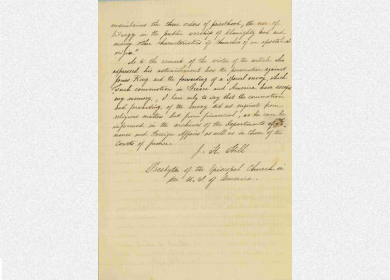 maintains the three orders of priesthood, the use of
liturgy in the public worship of Almighty God and
many other characteristics of churches of an apostolic
origin."
As to the remark of the writer of the article who
expresses his astonishment how the persecution against
Jonas King and the preceding of a special envoy, which
such commotion in Greece and America have
my memory, I have only to say that the commotion
but preceding, of the envoy did not originate from
religious matters but from financial, as he can be
informed in the archives of the Departments of
nance and Foreign Affairs as well as in those of the
Courts of justice.
J. H. Hill
Presbyter of the Episcopal Church in
the U. S. of America